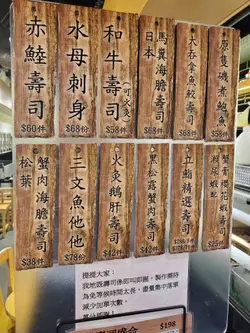 赤鯥壽司
$60件
水母刺身
$68份
和牛壽司
(可火炙)
$58件
日本
馬糞海膽壽司
$68件
大吞拿魚鮫壽司
$68件
原隻磯煮鮑魚
$58件
松葉
蟹肉海膽壽司
$38件
三文魚他他
$78份
火炙鵝肝壽司
$42件
黑松露蟹肉壽司
$42件
立鮨精選壽司
瀨尿蝦配
蟹膏櫻花蝦壽司
$25件
提提大家：
我地既壽司係即叫即握，製作需時
為免等候時間太長，盡量集中落單
減少加單次數，
$198